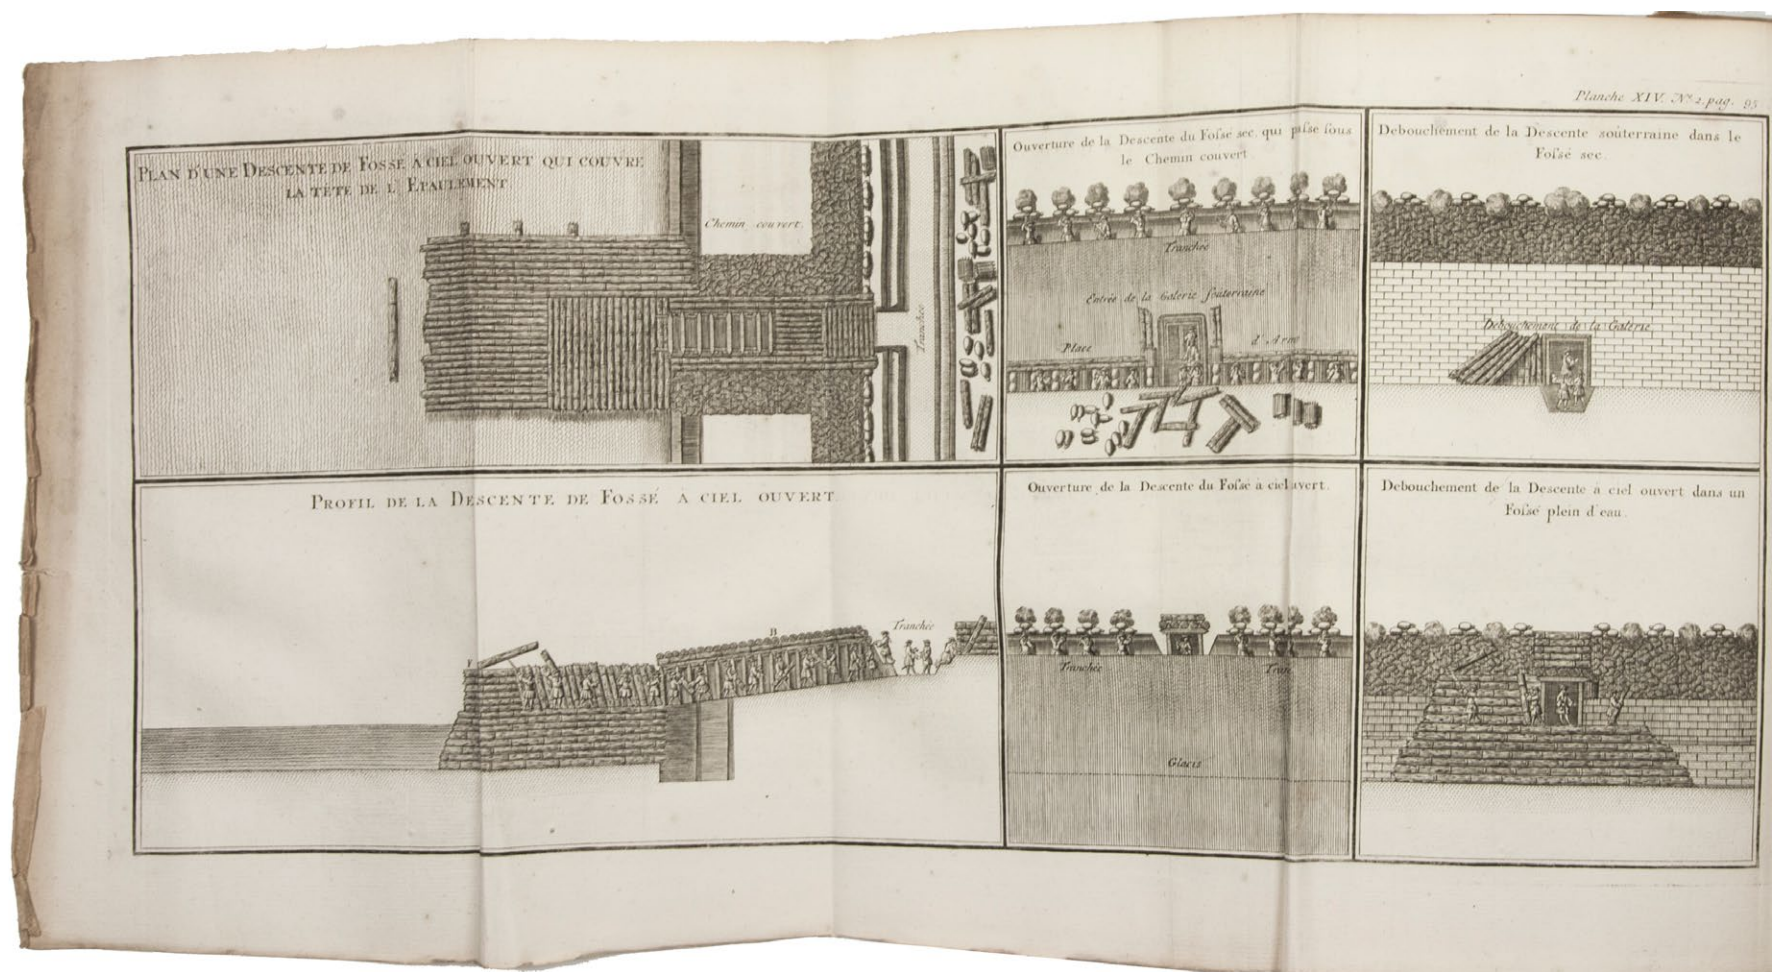 Planche XIV. N.º 2. pag. 95
PLAN D'UNE DESCENTE DE FOSSE A CIEL OUVERT QUI COUVRE
LA TETE DE L'EPAULEMENT
Chemin couvert.
Tranchée
Ouverture de la Descente du Foſsé sec, qui paſse ſous
le Chemin couvert.
Tranchée
Entrée de la Galerie ſouterraine
Place d'Arme
Debouchement de la Descente soûterraine dans le
Foſsé sec.
Debouchement de la Galerie
PROFIL DE LA DESCENTE DE FOSSÉ À CIEL OUVERT
F
B
Tranchée
Ouverture de la Descente du Foſsé à ciel uvert.
Tranchée
Tran
Glacis
Debouchement de la Descente à ciel ouvert dans un
Foſsé plein d'eau.